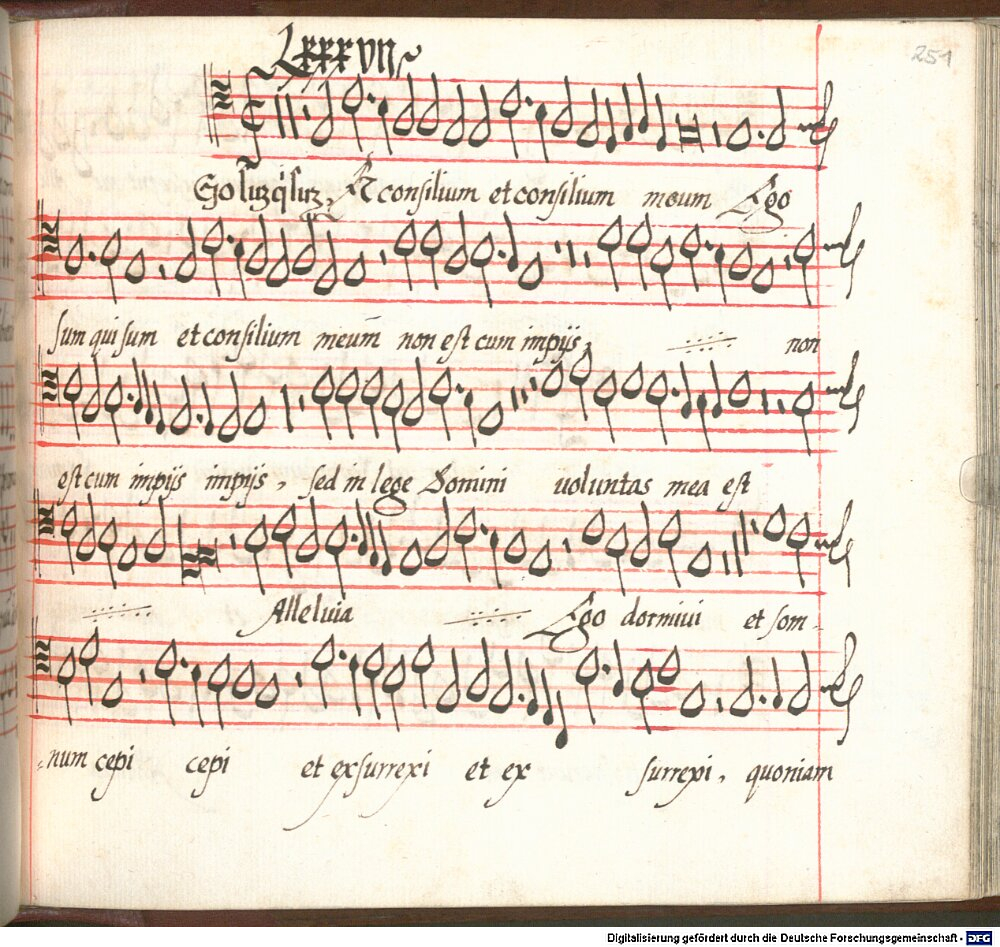 Lxxxvij
251
Ego sum q̃ sum, Et consilium et consilium meum Ego
sum qui sum et consilium meum̄ non est cum impijs, non
est cum impijs impijs, sed in lege Domini uoluntas mea est
Alleluia Ego dormiui et som-
num cepi cepi et exsurrexi et ex surrexi, quoniam
Digitalisierung gefördert durch die Deutsche Forschungsgemeinschaft - DFG